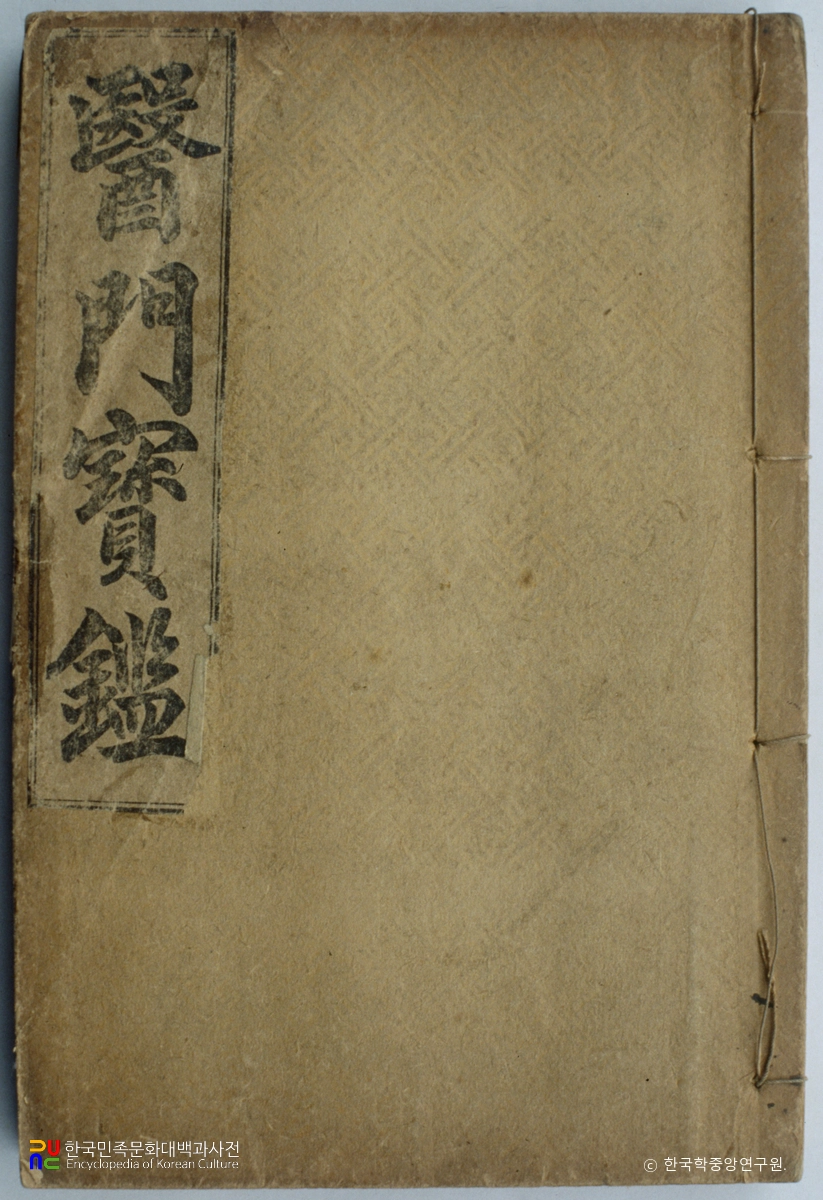 醫門寶鑑
한국민족문화대백과사전
Encyclopedia of Korean Culture
ⓒ 한국학중앙연구원.